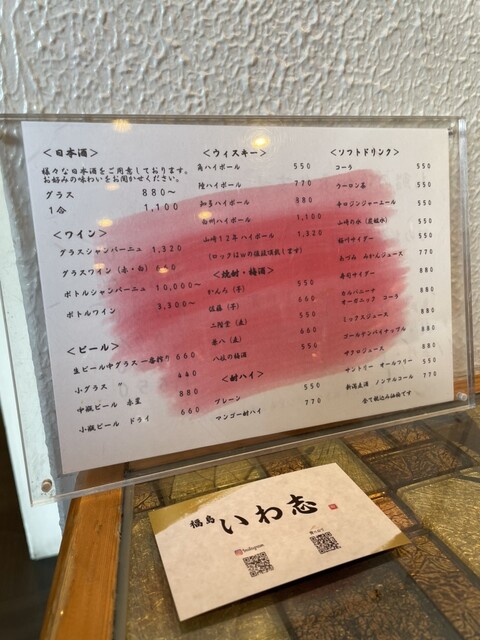 <日本酒>
様々な日本酒をご用意しております。
お好みの味わいをお聞かせください。
グラス 880～
1合 1,100
<ワイン>
グラスシャンパーニュ 1,320
グラスワイン(赤・白)
ボトルシャンパーニュ 10,000～
ボトルワイン 3,300～
<ビール>
生ビール中グラス 一番搾り 660
小グラス 〃 440
中瓶ビール 赤星 880
小瓶ビール ドライ 660
<ウィスキー>
角ハイボール 550
陸ハイボール 770
知多ハイボール 880
白州ハイボール 1,100
山崎12年ハイボール 1,320
<焼酎・梅酒>
550
佐藤(芋) 660
二階堂(麦) 550
兼八(麦) 660
梅酒 550
<酎ハイ>
プレーン 550
マンゴー酎ハイ 770
<ソフトドリンク>
コーラ 550
ウーロン茶 550
辛口ジンジャーエール 550
山崎の水(炭酸水) 550
サイダー 550
みかんジュース 770
サイダー 880
オーガニック コーラ 880
ミックスジュース 880
ゴールデンパイナップル 880
ザクロジュース 880
サントリー オールフリー 550
ノンアルコール 770
全て税込み価格です
福島 いわ志
Instagram